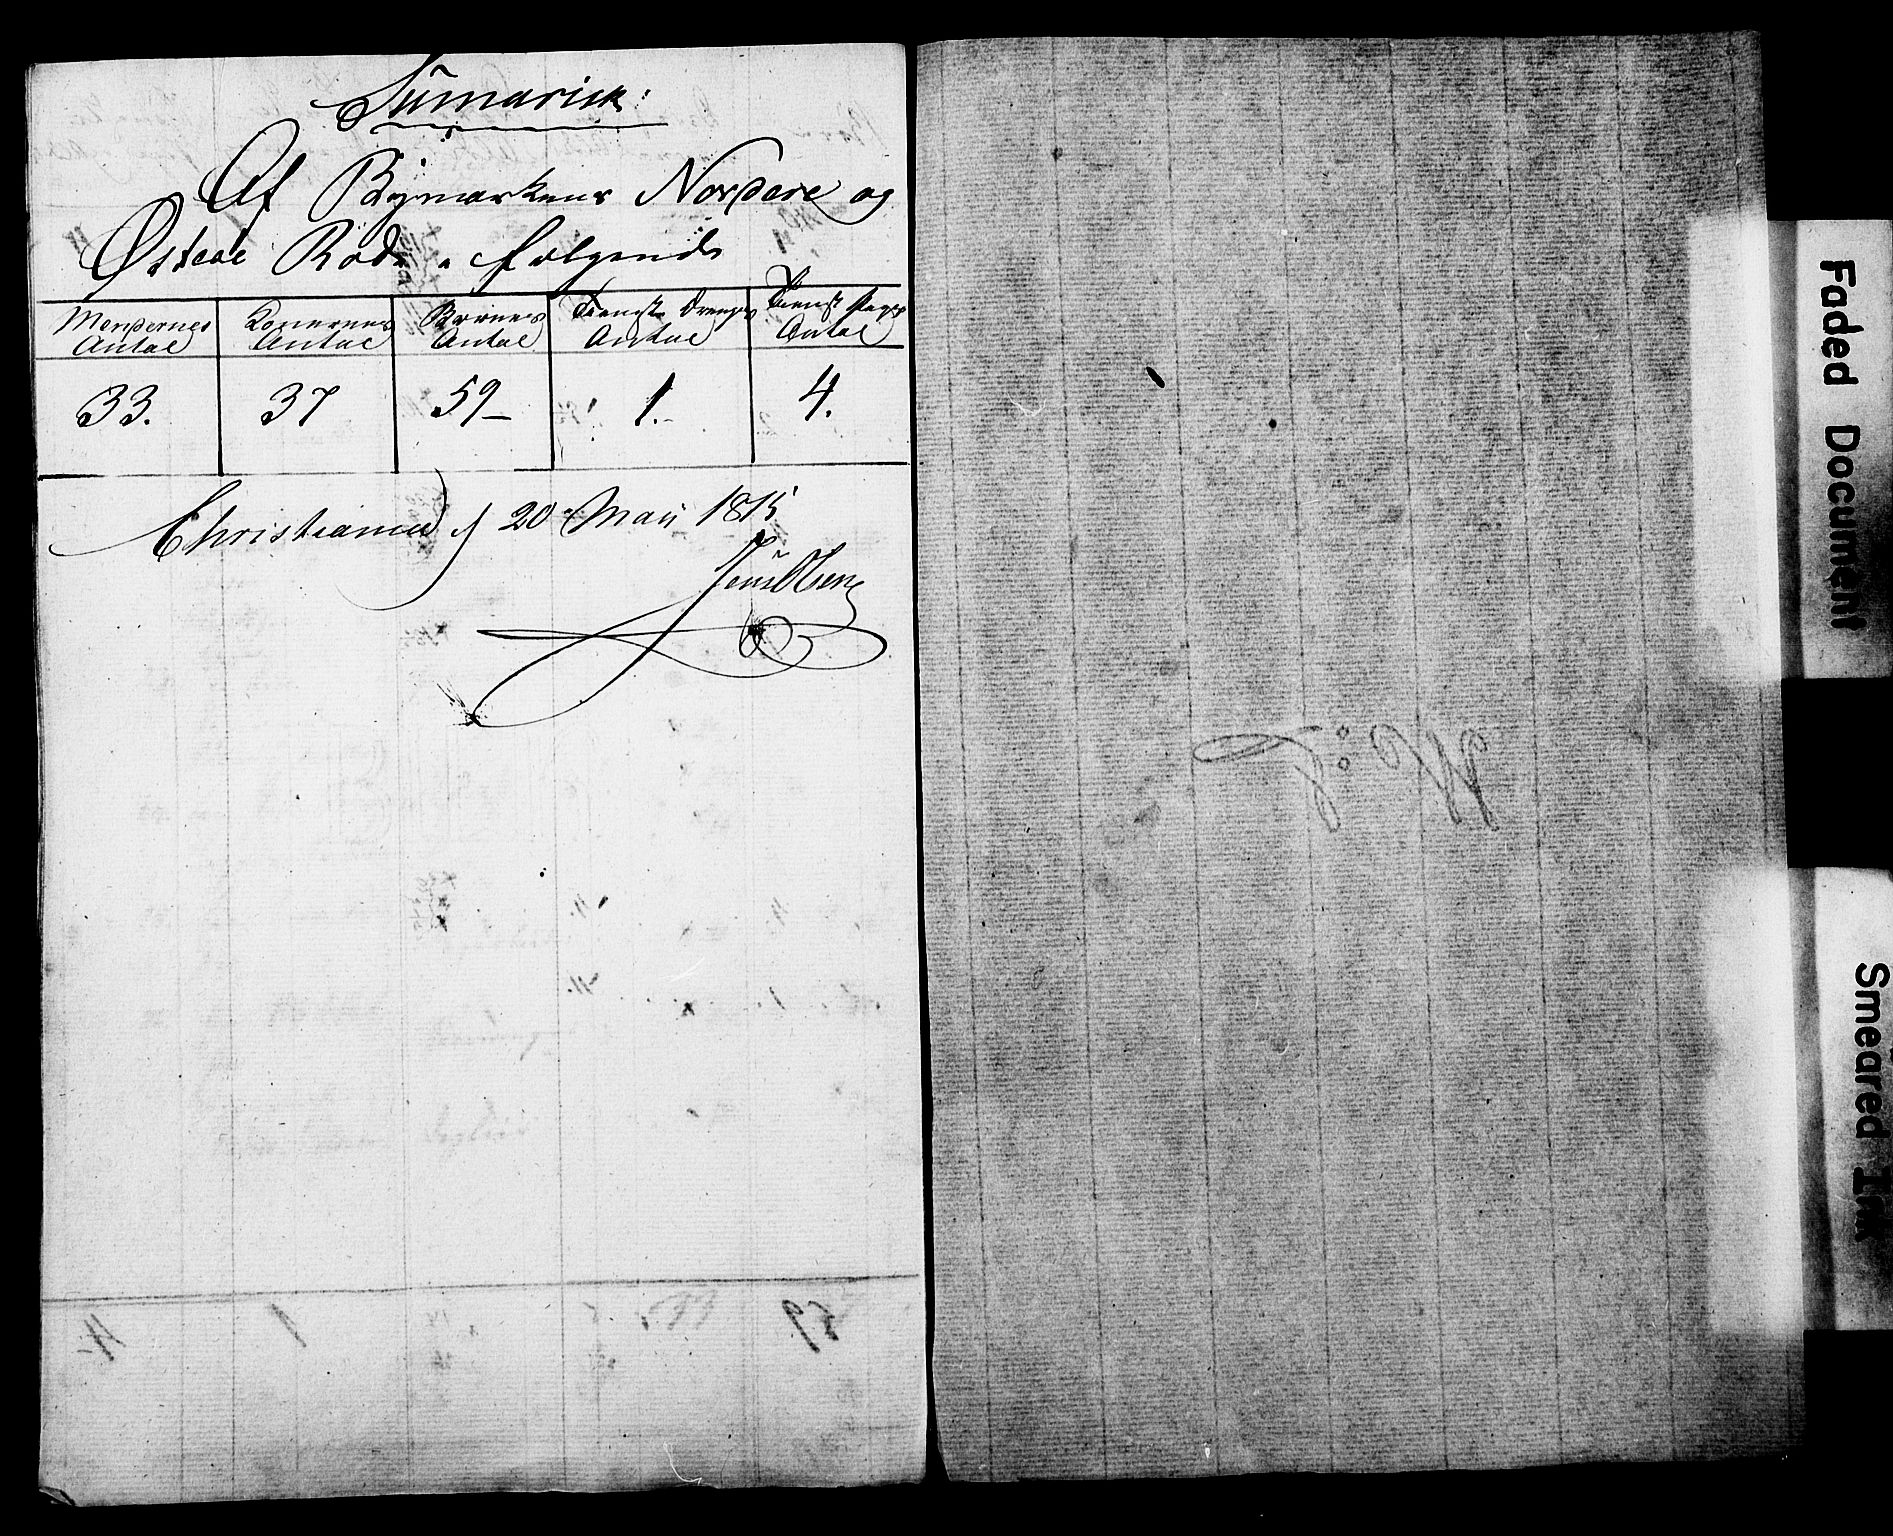 Sumarisk:
Af Bymarkens Nordere og
Østere Rode følgende
Mendernes Antal
Konernes Antal
Børnenes Antal
Tieneste Drenges Antal
Tieneste Piger Antal
33. 37 59 1. 4.
Christiania d 20 Maii 1815
Faded Document
Smeared Ink